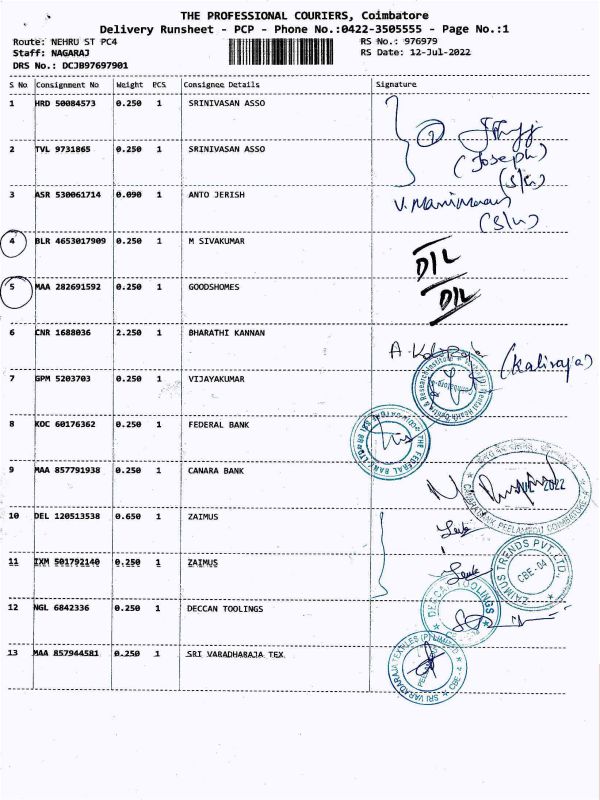 THE PROFESSIONAL COURIERS, Coimbatore
Delivery Runsheet - PCP - Phone No.:0422-3505555 - Page No.:1
Route: NEHRU ST PC4 RS No.: 976979
Staff: NAGARAJ RS Date: 12-Jul-2022
DRS No.: DCJB97697901
S No Consignment No Weight PCS Consignee Details Signature
1 HRD 50084573 0.250 1 SRINIVASAN ASSO
(Joseph)
2 TVL 9731865 0.250 1 SRINIVASAN ASSO
3 ASR 530061714 0.090 1 ANTO JERISH
4 BLR 4653017909 0.250 1 M SIVAKUMAR D/L
5 MAA 282691592 0.250 1 GOODSHOMES D/L
6 CNR 1688036 2.250 1 BHARATHI KANNAN
A. Kaliraja (Kaliraja)
7 GPM 5203703 0.250 1 VIJAYAKUMAR
8 KOC 60176362 0.250 1 FEDERAL BANK
THE FEDERAL BANK LTD
9 MAA 857791938 0.250 1 CANARA BANK
2022
PEELAMEDU COIMBATORE-4
10 DEL 120513538 0.650 1 ZAIMUS
11 IXM 501792140 0.250 1 ZAIMUS
ZAIMUS TRENDS PVT. LTD.
CBE-04
12 NGL 6842336 0.250 1 DECCAN TOOLINGS
DECCAN TOOLINGS
13 MAA 857944581 0.250 1 SRI VARADHARAJA TEX
SRI VARADARAJA TEXTILES (P) LIMITED
CBE-4